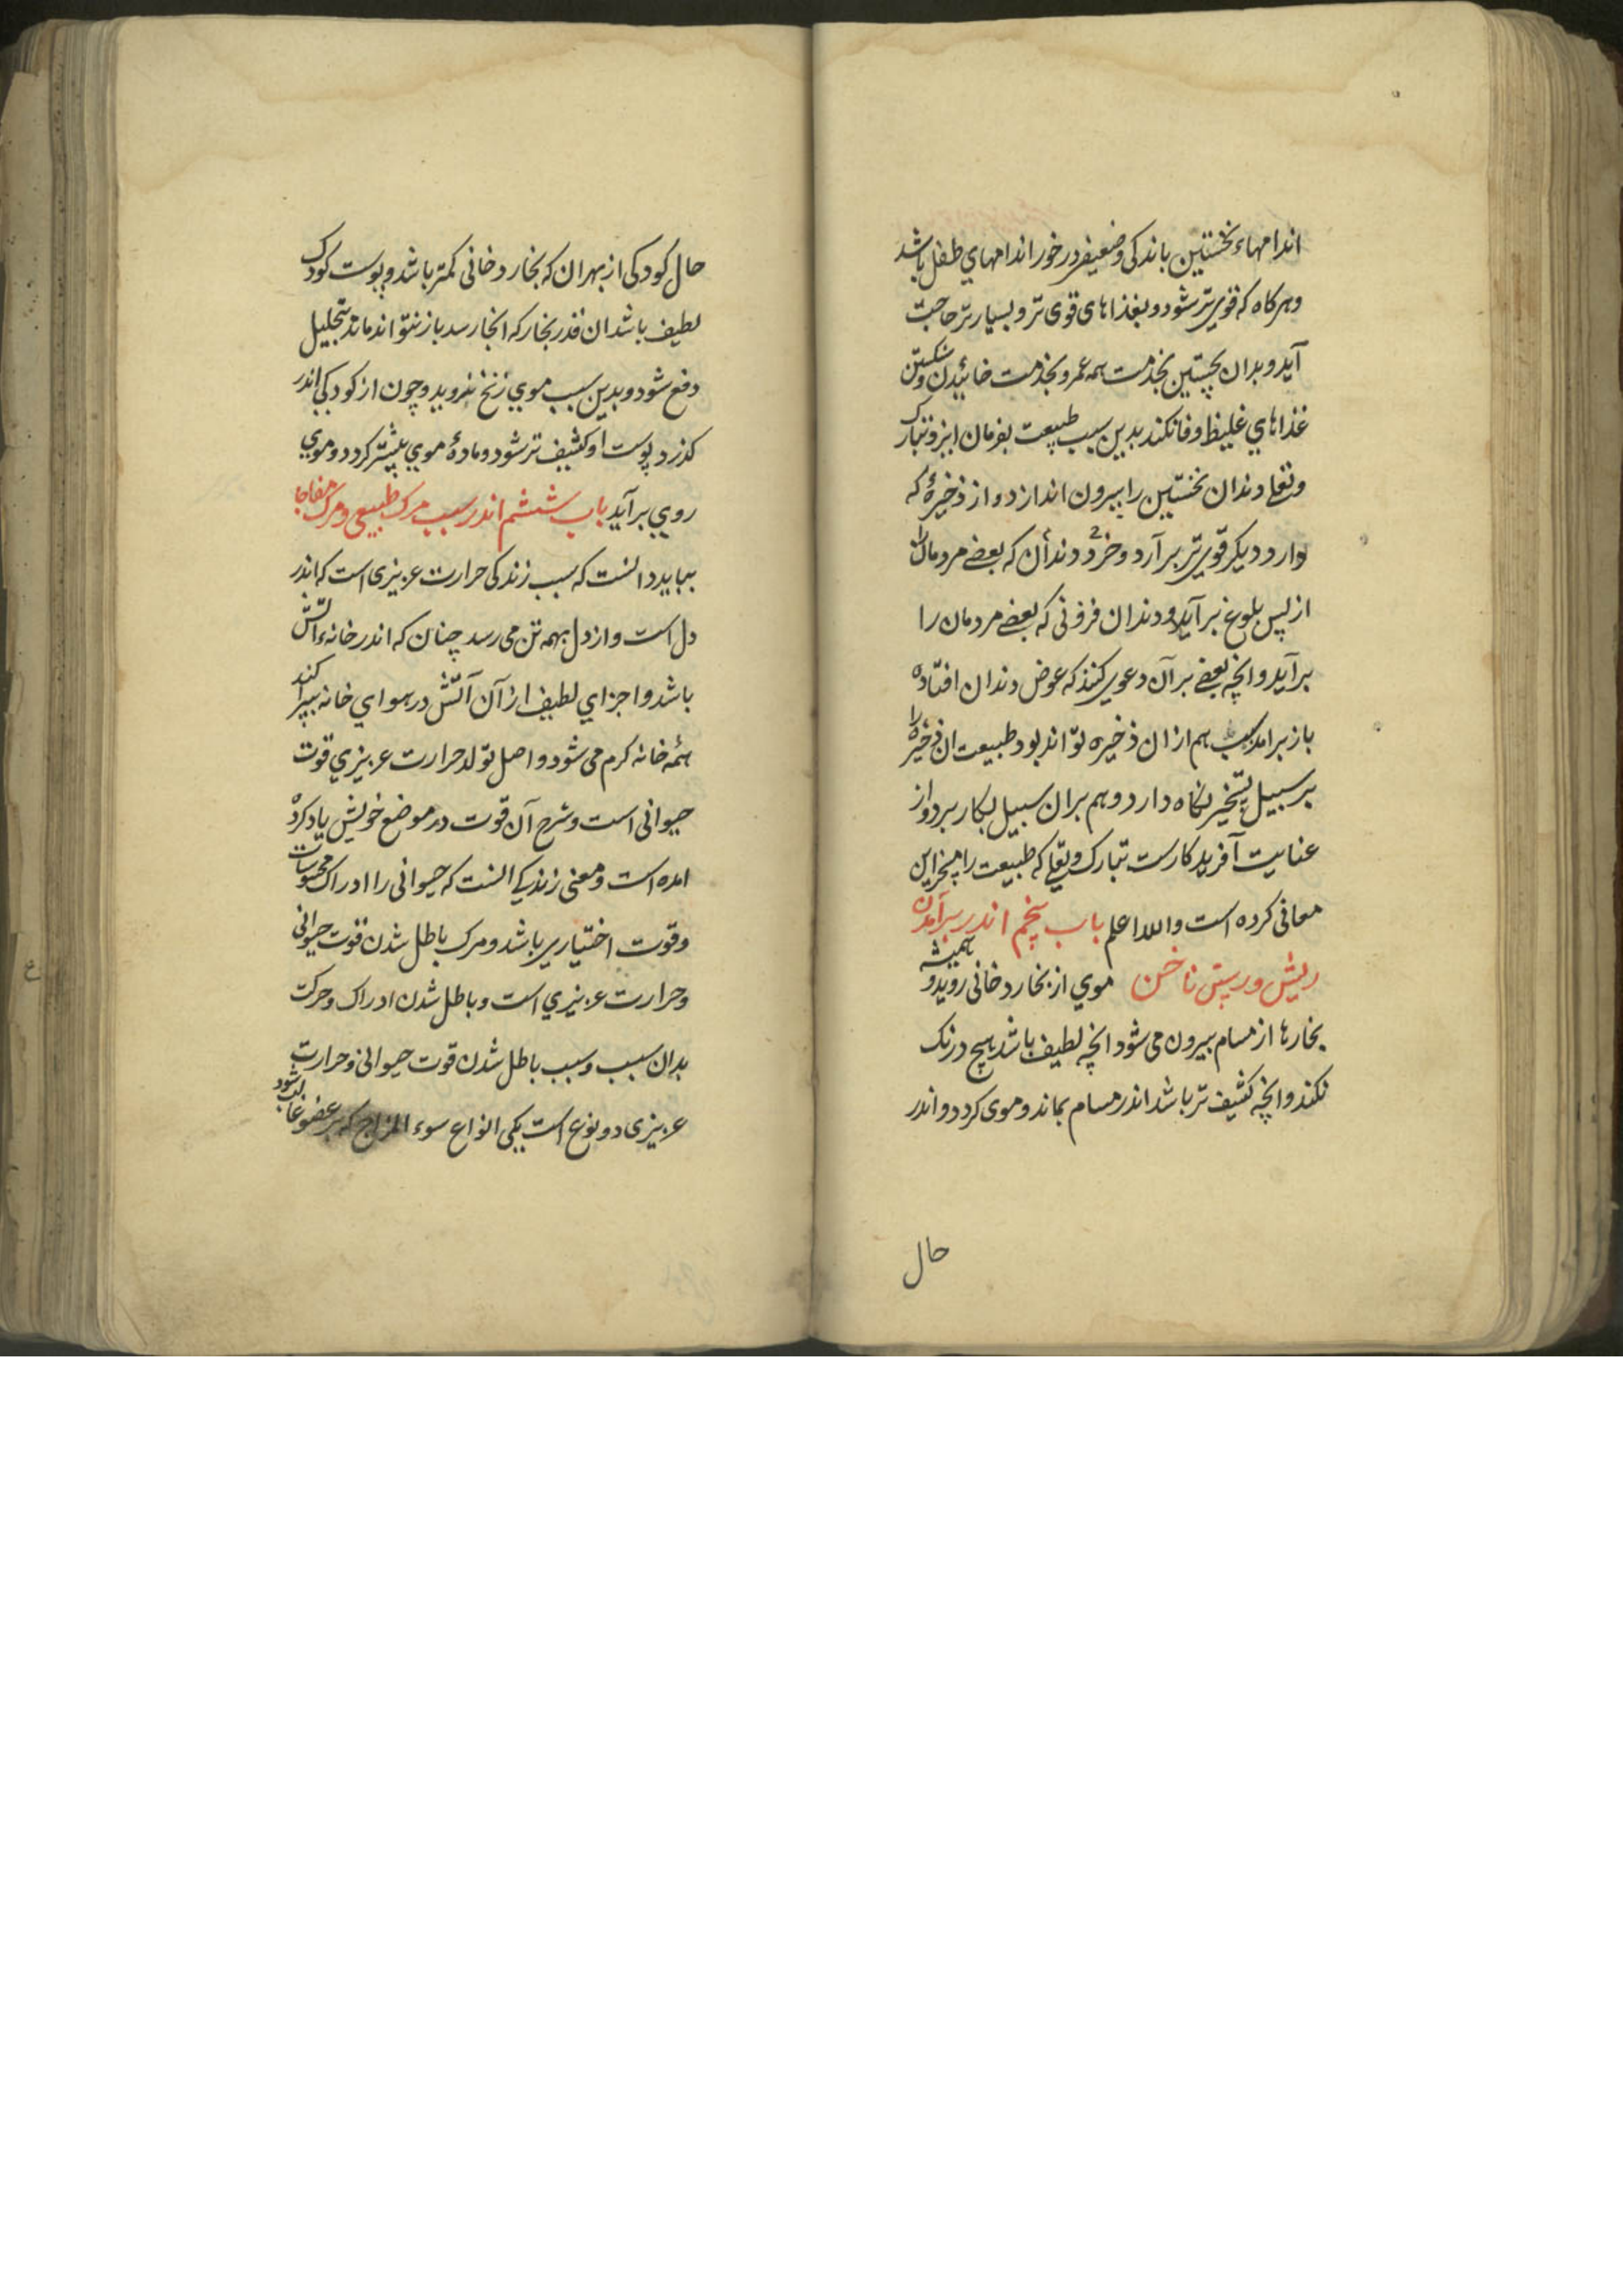 اندامهاء نخستین باندکی وضعیفی درخور اندامهاي طفل باشد
وهرکاه که قوي تر شود و بغذاهای قوی تر و بسیارتر حاجت
آید و بدان نخستین بخدمت همه عمر و بخدمت خائیدن و شکستن
غذاهاي غلیظ وفا نکند بدین سبب طبیعت بفرمان ایزد تبارک
وتعا دندان نخستین را بیرون اندازد و از ذخیرهٔ که
دارد دیکر قوي تر برآرد و خرد دندان که بعضے مردمان را
از پس بلوغ برآید و دندان فزونی که بعضے مردمان را
برآید و انچه بعضے برآن دعوي کنند که عوض دندان افتاده
باز برامد هم ازان ذخیره تواند بود طبیعت ان ذخیره را
بر سبیل تسخیر نکاه دارد و هم بران سبیل بکار برد و از
عنایت آفریدکارست تبارک وتعا که طبیعت را مسخر این
معانی کرده است والله اعلم باب پنجم اندر برآمدن
ریش و رستن ناخن موي از بخار دخانی روید و همیشه
بخارها از مسام بیرون می شود انچه لطیف باشد هیچ درنک
نکند و انچه کثیف تر باشد اندر مسام بماند و موی کردد و اندر
حال
حال کودکی از بهر ان که بخار دخانی کمتر باشد و پوست کودک
لطیف باشد ان قدر بخار که انجا رسد باز نتواند ماند بتحلیل
دفع شود و بدین سبب موي زنخ نروید و چون از کودکی اندر
کذرد پوست او کثیف تر شود و مادهٔ موي بیشتر کردد و موي
روي برآید باب ششم اندر سبب مرک طبیعی و مرک مفاجا
ببايد دانست که سبب زندکی حرارت عزیزی است که اندر
دل است و از دل بهمه تن می رسد چنان که اندر خانه آتش
باشد و اجزاي لطیف از آن آتش در هواي خانه بپراکند
همه خانه کرم می شود و اصل تولد حرارت عزیزي قوت
حیوانی است و شرح آن قوت در موضع خویش یاد کرده
امده است و معنی زندکے انست که حیوانی را ادراک محسوسات
وقوت اختیاري باشد و مرک باطل شدن قوت حیوانی
وحرارت عزیزي است و باطل شدن ادراک و حرکت
بدان سبب و سبب باطل شدن قوت حیوانی و حرارت
عزیزی دو نوع است یکی انواع سوء المزاج که بر عضو غالب شود